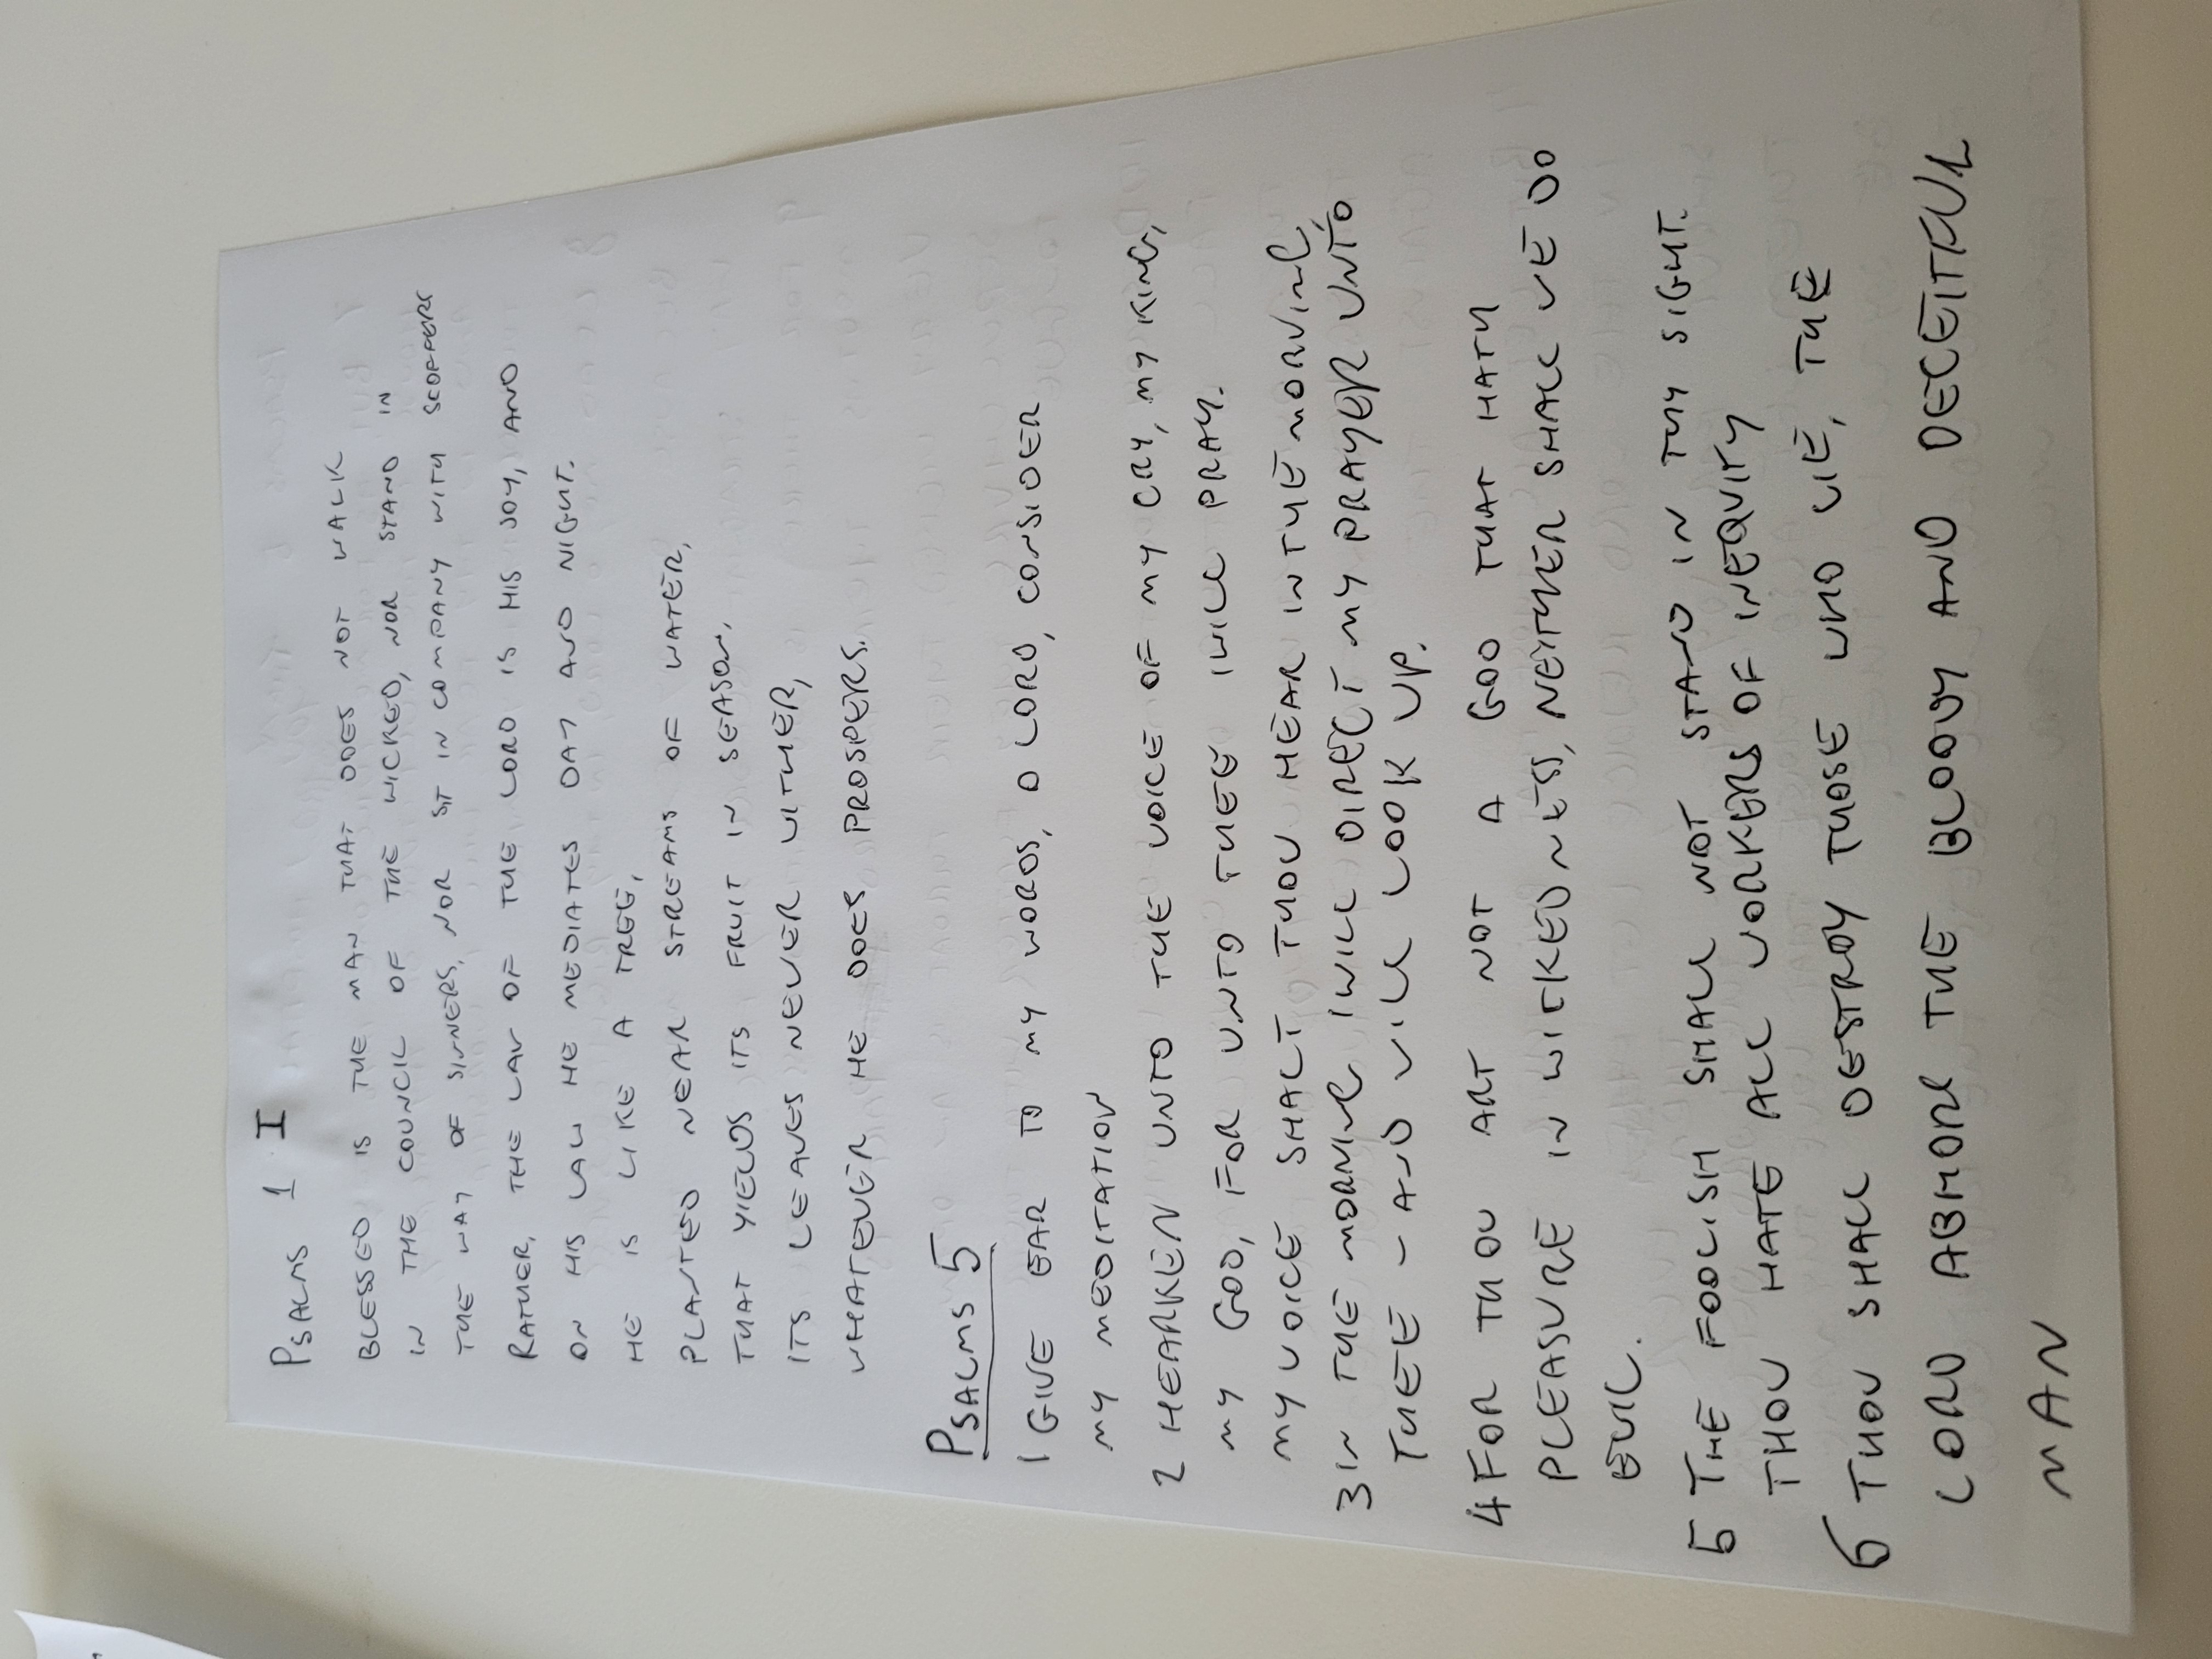 PSALMS 1 I
BLESSED IS THE MAN THAT DOES NOT WALK
IN THE COUNCIL OF THE WICKED, NOR STAND IN
THE WAY OF SINNERS, NOR SIT IN COMPANY WITH SCOFFERS
RATHER, THE LAW OF THE LORD IS HIS JOY, AND
ON HIS LAW HE MEDIATES DAY AND NIGHT.
HE IS LIKE A TREE,
PLANTED NEAR STREAMS OF WATER,
THAT YIELDS ITS FRUIT IN SEASON,
ITS LEAVES NEVER WITHER,
WHATEVER HE DOES PROSPERS.
PSALMS 5
1 GIVE EAR TO MY WORDS, O LORD, CONSIDER
MY MEDITATION
2 HEARKEN UNTO THE VOICE OF MY CRY, MY KING,
MY GOD, FOR UNTO THEE I WILL PRAY.
MY VOICE SHALT THOU HEAR IN THE MORNING,
3 IN THE MORNING I WILL DIRECT MY PRAYER UNTO
THEE - AND WILL LOOK UP.
4 FOR THOU ART NOT A GOD THAT HATH
PLEASURE IN WICKEDNESS, NEITHER SHALL WE DO
EVIL.
5 THE FOOLISH SHALL NOT STAND IN THY SIGHT.
THOU HATE ALL WORKERS OF INEQUITY
6 THOU SHALL DESTROY THOSE WHO LIE, THE
LORD ABHORS THE BLOODY AND DECEITFUL
MAN